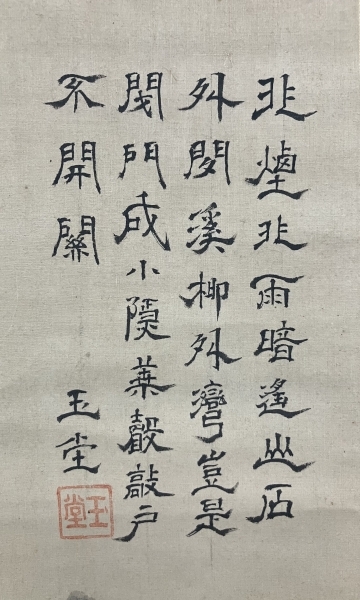 非煙非雨暗遙山石
外溪柳外灣豈是
閉門成小隱敲戶
不開關
玉堂
玉堂